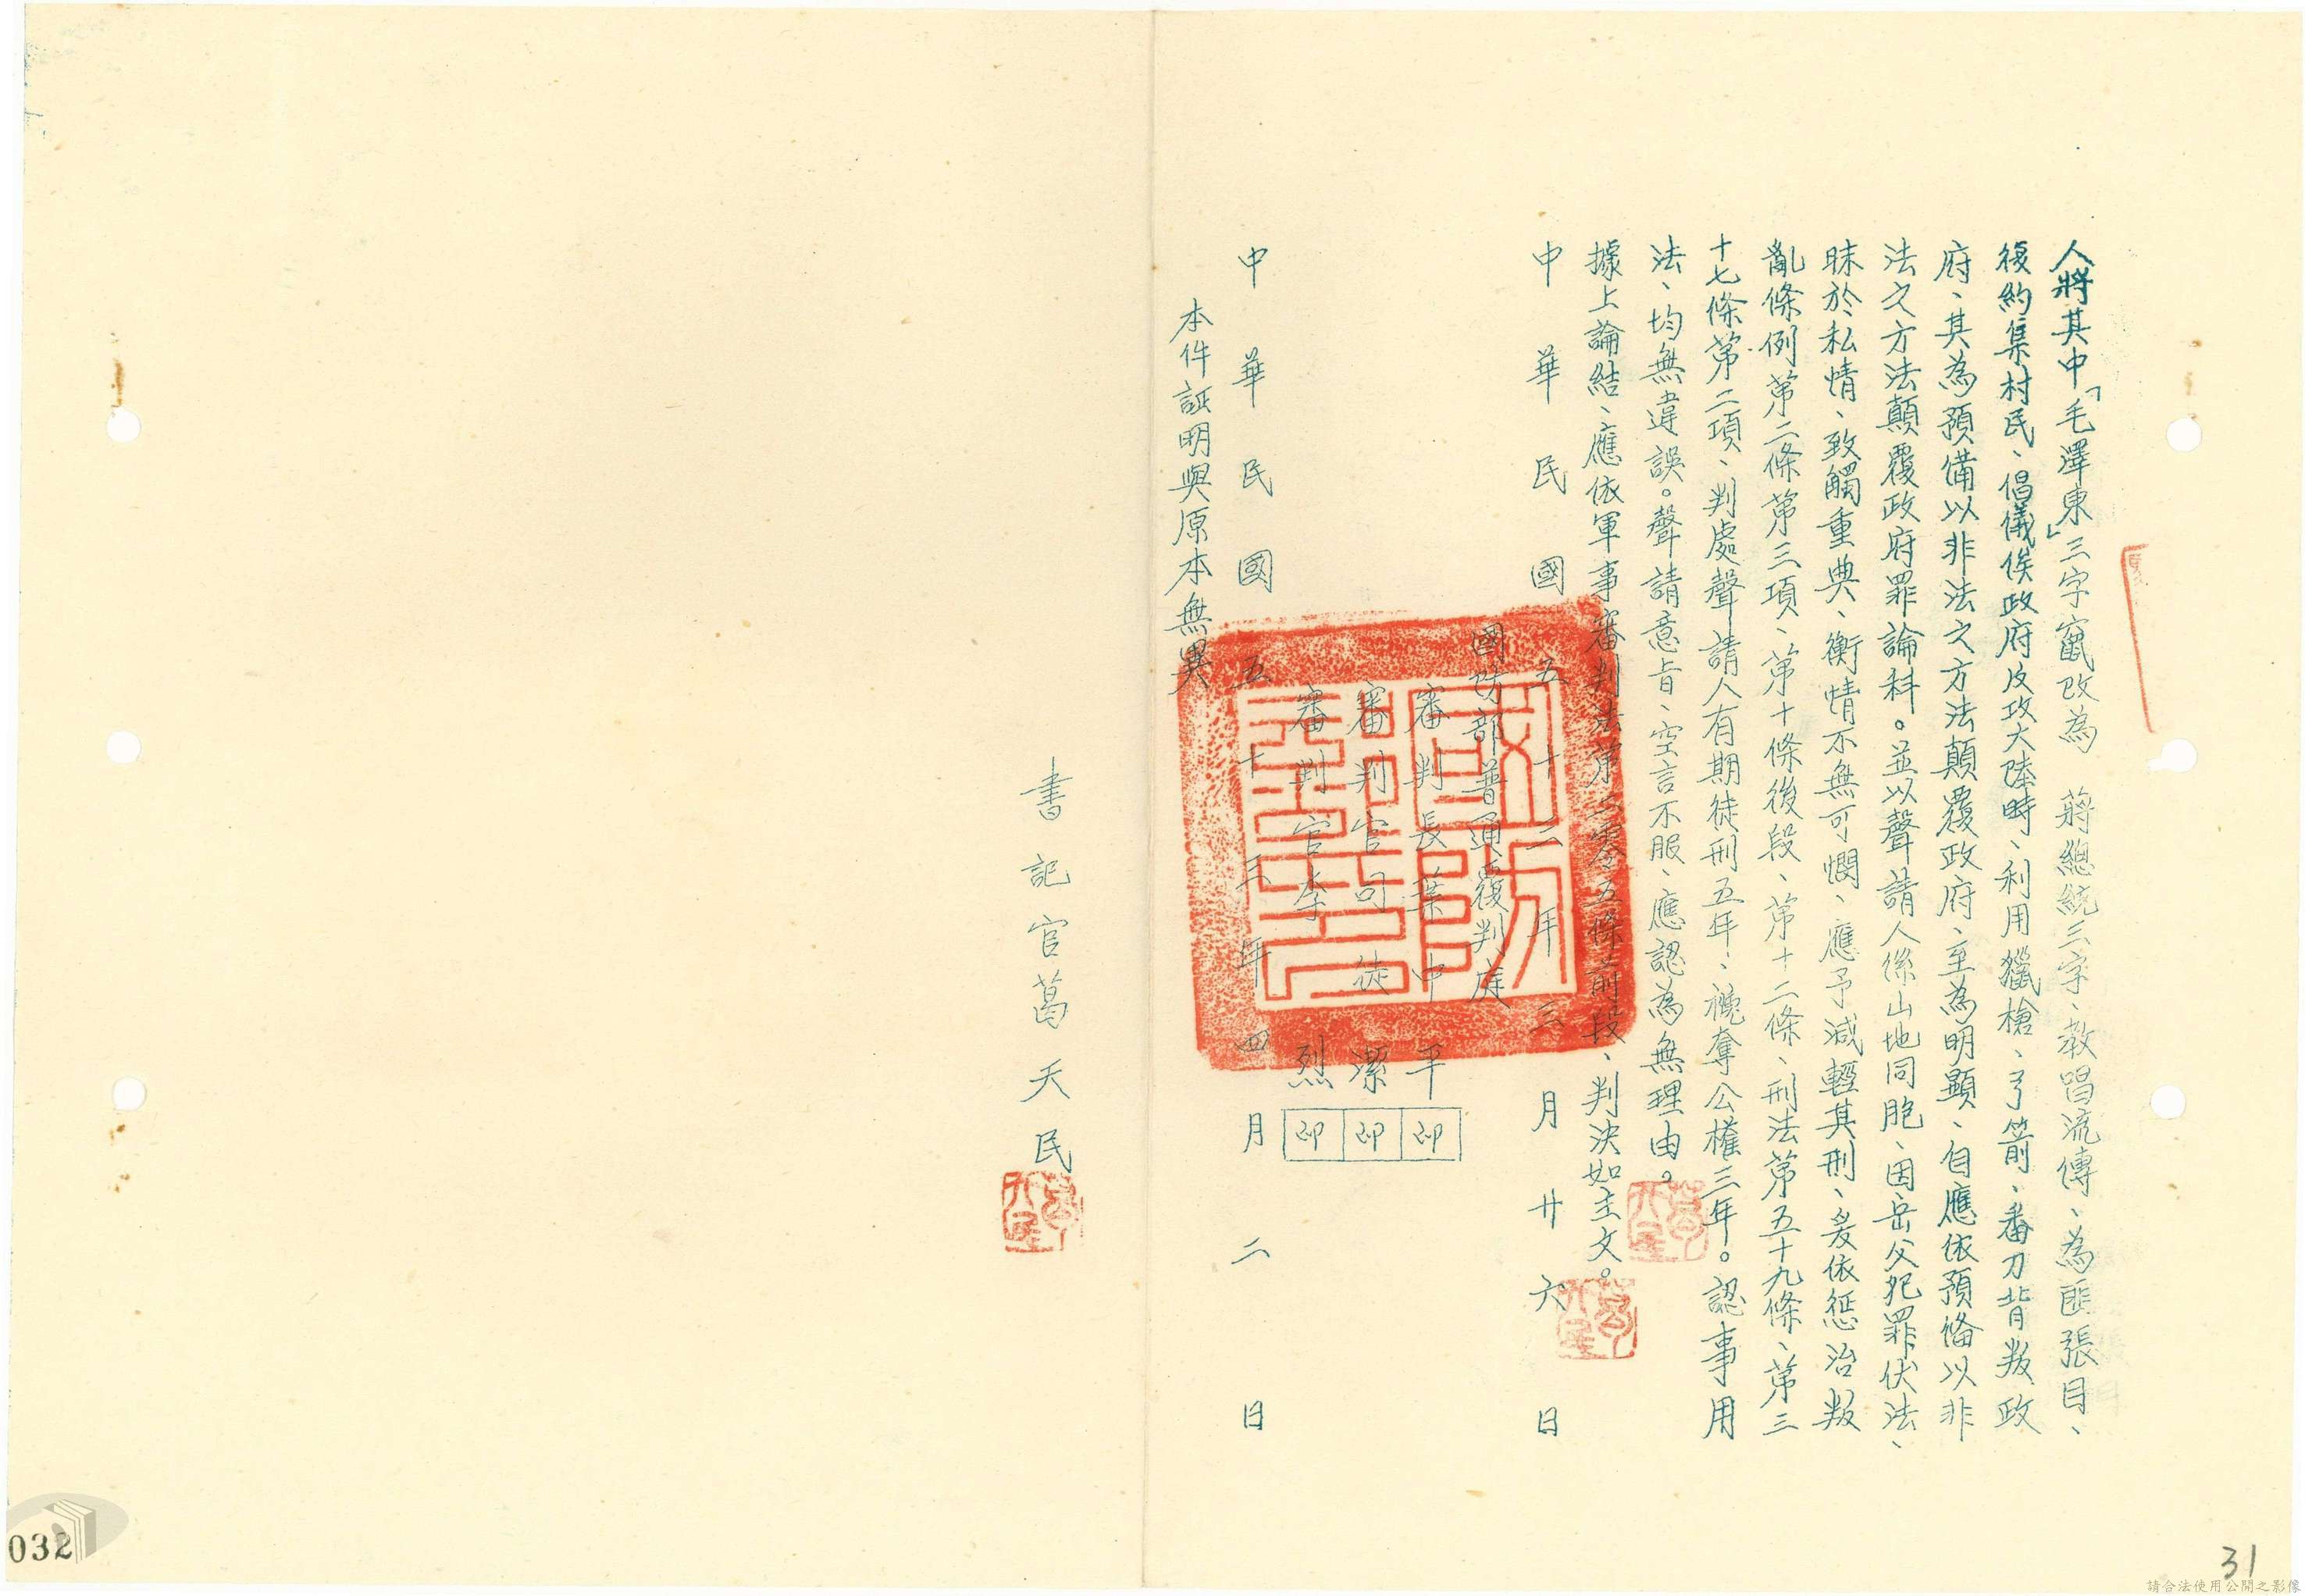 人將其中「毛澤東」三字竄改為 蔣總統三字、教唱流傳、為匪張目、
後約集村民、倡儀俟政府反攻大陸時、利用獵槍、弓箭、番刀背叛政
府、其為預備以非法之方法顛覆政府、至為明顯、自應依預備以非
法之方法顛覆政府罪論科。並以聲請人係山地同胞、因岳父犯罪伏法、
昧於私情、致觸重典、衡情不無可憫、應予減輕其刑、爰依懲治叛
亂條例第二條第三項、第十條後段、第十二條、刑法第五十九條、第三
十七條第二項、判處聲請人有期徒刑五年、褫奪公權三年。認事用
法、均無違誤。聲請意旨、空言不服、應認為無理由。
據上論結、應依軍事審判法第二零五條前段、判決如主文。
中華民國五十三年三月廿六日
國防部普通覆判庭
審判長葉中平印
審判官司徒潔印
審判官李烈印
中華民國五十三年四月二日
本件証明與原本無異
書記官葛天民
葛天民
葛天民
葛天民
032
31
請合法使用公開之影像